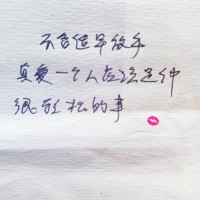 不合适早放手
真爱一个人应该是件
很轻松的事